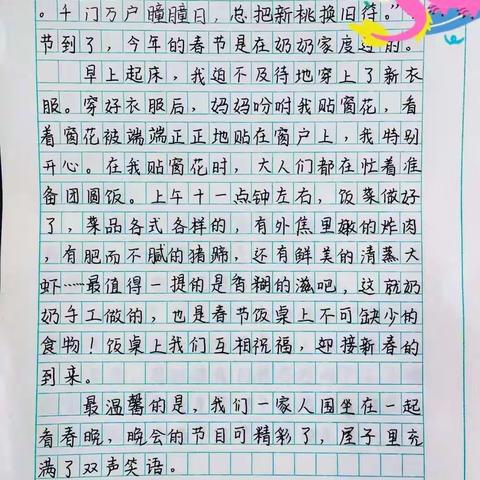 。千门万户瞳瞳日，总把新桃换旧符。”
节到了，今年的春节是在奶奶家度过的。
早上起床，我迫不及待地穿上了新衣
服。穿好衣服后，妈妈吩咐我贴窗花，看
着窗花被端端正正地贴在窗户上，我特别
开心。在我贴窗花时，大人们都在忙着准
备团圆饭。上午十一点钟左右，饭菜做好
了，菜品各式各样的，有外焦里嫩的炸肉
，有肥而不腻的猪蹄，还有鲜美的清蒸大
虾……最值得一提的是香糊的滋吧，这就奶
奶手工做的，也是春节饭桌上不可缺少的
食物！饭桌上我们互相祝福，迎接新春的
到来。
最温馨的是，我们一家人围坐在一起
看春晚，晚会的节目可精彩了，屋子里充
满了双声笑语。